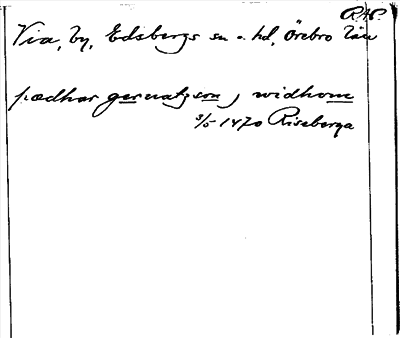 RAP.
Via, by, Edsbergs sn o. hd, Örebro län
pædhar geruatzson, widhom
3/5 1470 Riseberga